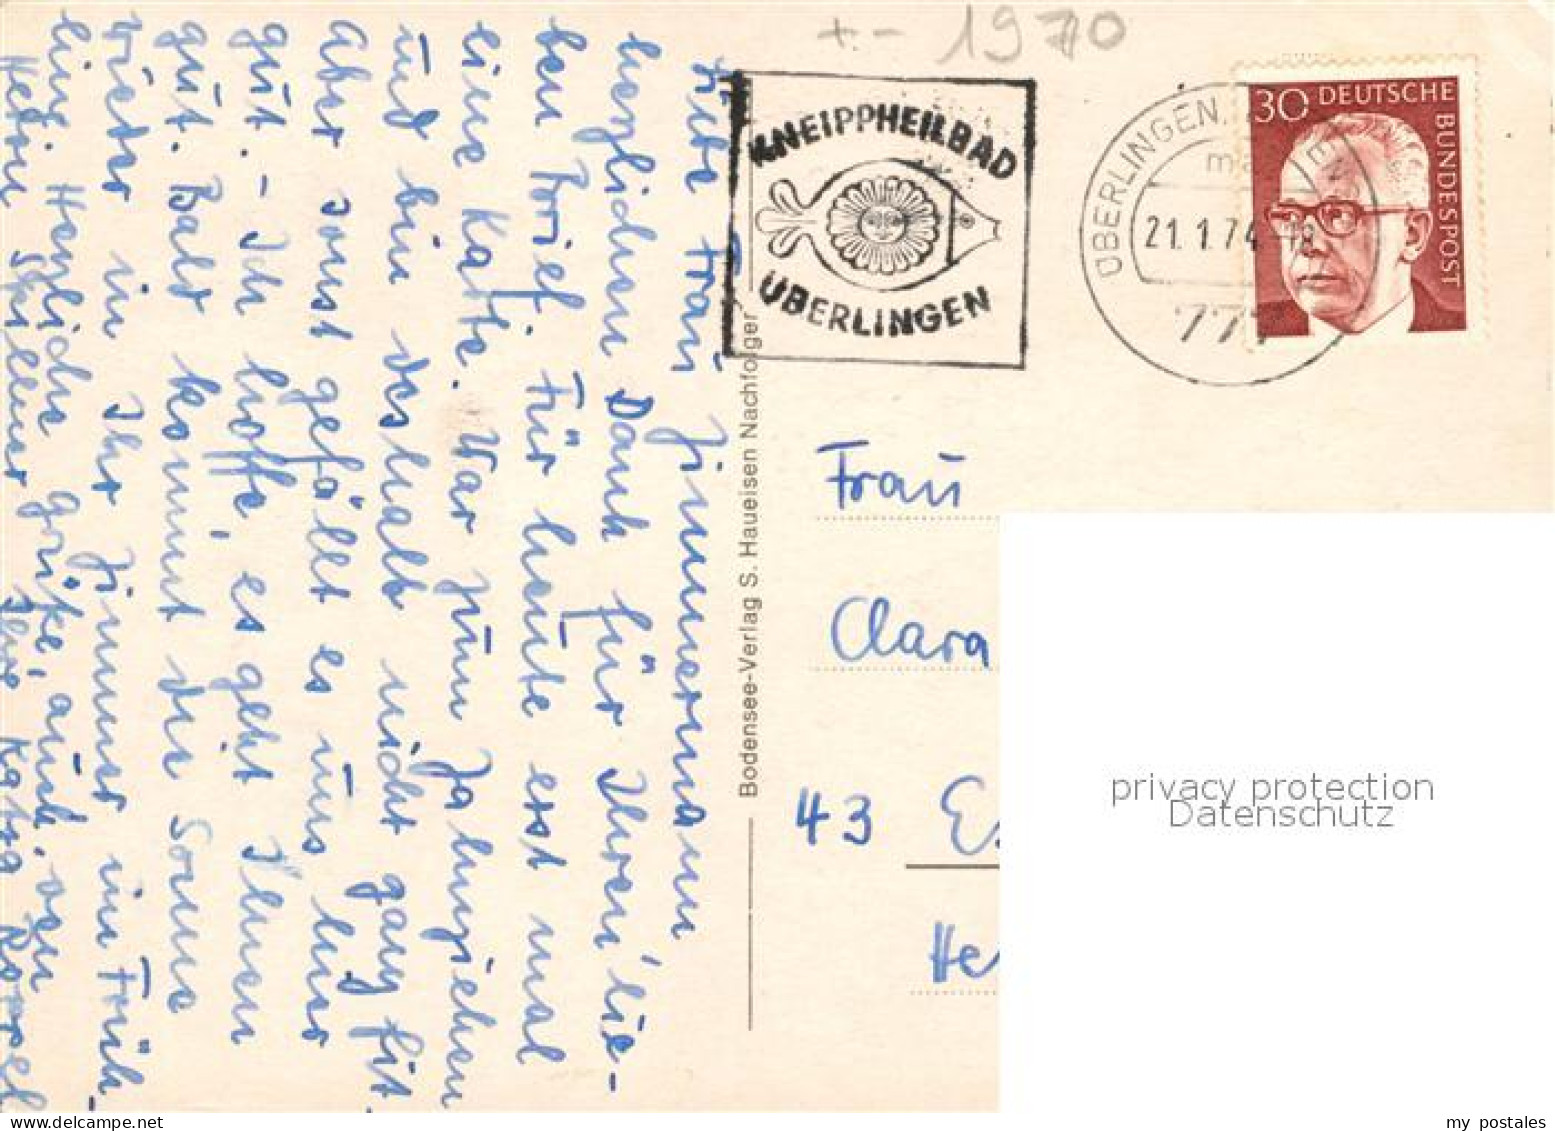 +- 1970
KNEIPPHEILBAD
ÜBERLINGEN
ÜBERLINGEN,
21.1.74
777
30 DEUTSCHE
BUNDESPOST
Liebe Frau Zimmermann
herzlichen Dank für Ihren lie-
ben Brief. Für heute erst mal
eine Karte. War zum Zahnziehen
und bin deshalb nicht ganz fit.
Aber sonst gefällt es uns hier
gut. - Ich hoffe, es geht Ihnen
gut. Bald kommt die Sonne
wieder in Ihr Zimmer im Früh-
ling. Herzliche Grüße, auch von
Ihre Katja
Bodensee-Verlag S. Haueisen Nachfolger
Frau
Clara
43 Es
He
privacy protection
Datenschutz
my postales
www.delcampe.net